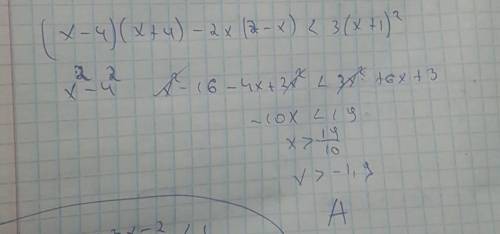 (x-4)(x+4)-2x(2-x) < 3(x+1)²
x²-4² x²-16-4x+2x² < 3x²+6x+3
-10x < 19
x > 19/10
x > -1,9
A